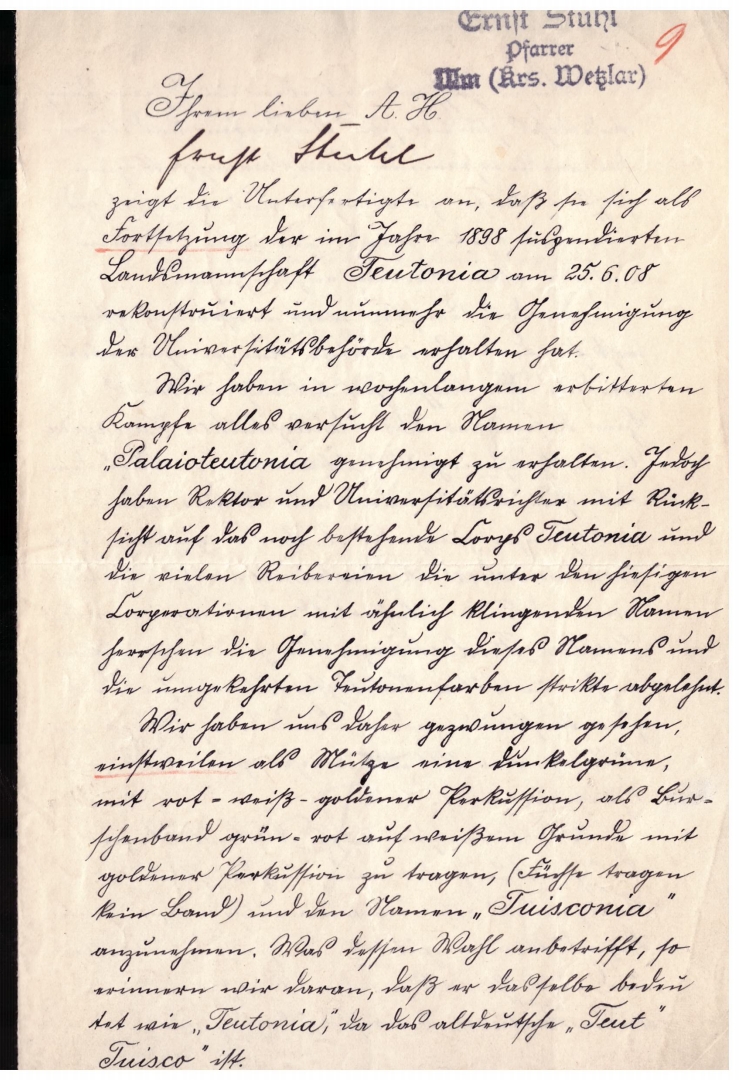 Ernst Stühl
Pfarrer
Ulm (Krs. Wetzlar)
9
Ihrem lieben A. H.
Ernst Stühl
zeigt die Unterfertigte an, daß sie sich als
Fortsetzung der im Jahre 1898 suspendierten
Landsmannschaft Teutonia am 25.6.08
rekonstruiert und nunmehr die Genehmigung
der Universitätsbehörde erhalten hat.
Wir haben in wochenlangem erbitterten
Kampfe alles versucht den Namen
„Palaioteutonia genehmigt zu erhalten. Jedoch
haben Rektor und Universitätsrichter mit Rück-
sicht auf das noch bestehende Corps Teutonia und
die vielen Reibereien die unter den hiesigen
Corperationen mit ähnlich klingenden Namen
herrschen die Genehmigung dieses Namens und
die umgekehrten Teutonenfarben strikte abgelehnt.
Wir haben uns daher gezwungen gesehen,
einstweilen als Mütze eine dunkelgrüne,
mit rot-weiß-goldener Perkussion, als Bur-
schenband grün-rot auf weißem Grunde mit
goldener Perkussion zu tragen, (Füchse tragen
kein Band) und den Namen „Tuisconia"
anzunehmen. Was dessen Wahl anbetrifft, so
erinnern wir daran, daß er dasselbe bedeu
tet wie „Teutonia", da das altdeutsche „Teut"
Tuisco" ist.